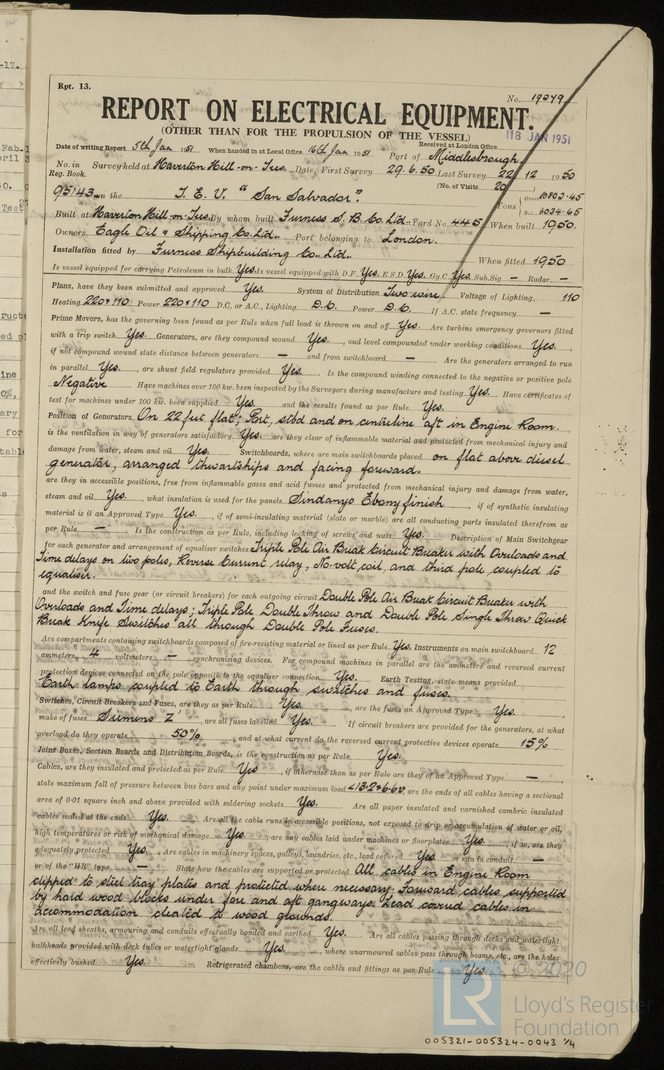 Rpt. 13.
No. 19249
REPORT ON ELECTRICAL EQUIPMENT.
(OTHER THAN FOR THE PROPULSION OF THE VESSEL)
18 JAN 1951
Date of writing Report 5th Jan 1951 When handed in at Local Office 16th Jan 1951 Received at London Office
No. in Reg. Book. Survey held at Haverton Hill-on-Tees. Date, First Survey 29.6.50 Last Survey 22.12.1950
Port of Middlesbrough.
(No. of Visits 20)
95143 on the T.E.V. "San Salvador". Tons Gross 10802.45 Net 6024.65
Built at Haverton Hill-on-Tees. By whom built Furness S.B. Co. Ltd. Yard No. 445 When built 1950.
Owners Eagle Oil & Shipping Co. Ltd. Port belonging to London.
Installation fitted by Furness Shipbuilding Co. Ltd. When fitted 1950
Is vessel equipped for carrying Petroleum in bulk Yes. Is vessel equipped with D.F. Yes. E.S.D. Yes. Gy.C. Yes. Sub.Sig. — Radar. —
Plans, have they been submitted and approved Yes. System of Distribution Two wire. Voltage of Lighting. 110
Heating 220 & 110 Power 220 & 110 D.C. or A.C., Lighting D.C. Power D.C. If A.C. state frequency —
Prime Movers, has the governing been found as per Rule when full load is thrown on and off Yes. Are turbine emergency governors fitted
with a trip switch Yes. Generators, are they compound wound Yes. and level compounded under working conditions Yes.
if not compound wound state distance between generators — and from switchboard — Are the generators arranged to run
in parallel Yes. are shunt field regulators provided Yes. Is the compound winding connected to the negative or positive pole
Negative Have machines over 100 kw. been inspected by the Surveyors during manufacture and testing Yes. Have certificates of
test for machines under 100 kw. been supplied Yes. and the results found as per Rule Yes.
Position of Generators On 22 feet flat; Port, stbd and on centreline aft in Engine Room.
is the ventilation in way of generators satisfactory Yes. are they clear of inflammable material and protected from mechanical injury and
damage from water, steam and oil Yes. Switchboards, where are main switchboards placed on flat above diesel
generator, arranged thwartships and facing forward.
are they in accessible positions, free from inflammable gases and acid fumes and protected from mechanical injury and damage from water,
steam and oil Yes. what insulation is used for the panels Sindanyo Ebony finish if of synthetic insulating
material is it an Approved Type Yes. if of semi-insulating material (slate or marble) are all conducting parts insulated therefrom as
per Rule — Is the construction as per Rule, including locking of screws and nuts Yes. Description of Main Switchgear
for each generator and arrangement of equaliser switches Triple Pole Air Break Circuit Breaker with Overloads and
Time delays on two poles, Reverse Current relay, No-volt coil, and third pole coupled to
equaliser.
and the switch and fuse gear (or circuit breakers) for each outgoing circuit Double Pole Air Break Circuit Breaker with
Overloads and Time delays; Triple Pole Double Throw and Double Pole Single Throw Quick
Break Knife Switches all through Double Pole Fuses.
Are compartments containing switchboards composed of fire-resisting material or lined as per Rule Yes. Instruments on main switchboard 12
ammeters 4 voltmeters — synchronising devices. For compound machines in parallel are the ammeters and reversed current
protection devices connected on the pole opposite to the equaliser connection Yes. Earth Testing, state means provided
Earth lamps coupled to Earth through switches and fuses.
Switches, Circuit Breakers and Fuses, are they as per Rule Yes. are the fuses an Approved Type Yes.
make of fuses Siemens 'Z' are all fuses labelled Yes. If circuit breakers are provided for the generators, at what
overload do they operate 50% and at what current do the reversed current protective devices operate 15%
Joint Boxes, Section Boards and Distribution Boards, is the construction as per Rule Yes.
Cables, are they insulated and protected as per Rule Yes if otherwise than as per Rule are they of an Approved Type —
state maximum fall of pressure between bus bars and any point under maximum load are the ends of all cables having a sectional
area of 0·01 square inch and above provided with soldering sockets Yes. Are all paper insulated and varnished cambric insulated
cables sealed at the ends Yes. Are all the cable runs in accessible positions, not exposed to drip or accumulation of water or oil,
high temperatures or risk of mechanical damage Yes. are any cables laid under machines or floorplates Yes. if so, are they
adequately protected Yes. Are cables in machinery spaces, galleys, laundries, etc., lead covered Yes or run in conduit —
or of the "HR" type — State how the cables are supported or protected All cables in Engine Room
clipped to steel tray plates and protected where necessary. Forward cables supported
by hard wood blocks under fore and aft gangways. Lead covered cables in
accommodation cleated to wood grounds.
Are all lead sheaths, armouring and conduits effectually bonded and earthed Yes. Are all cables passing through decks and watertight
bulkheads provided with deck tubes or watertight glands Yes. where unarmoured cables pass through beams, etc., are the holes
effectively bushed Yes. Refrigerated chambers, are the cables and fittings as per Rule Yes.
© 2020
LR
Lloyd's Register
Foundation
005321-005324-0043 1/4